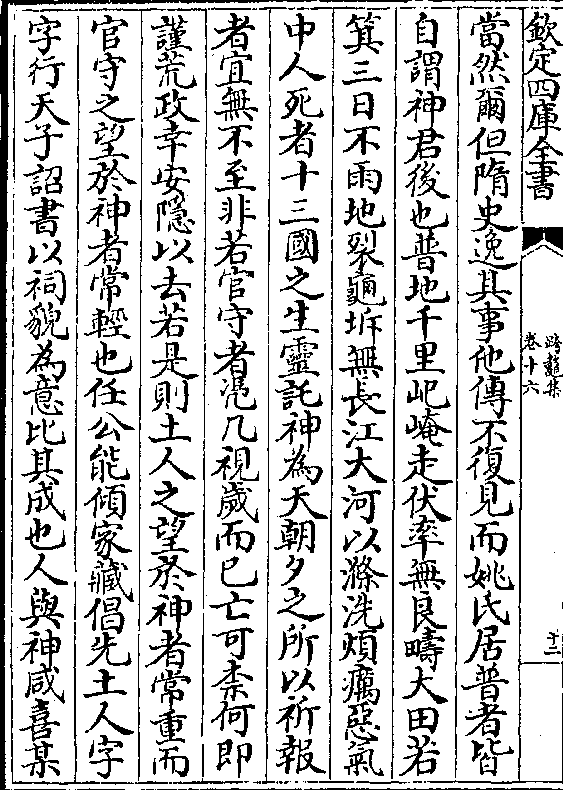 欽定四庫全書
卷十六
十二
當然爾但隋史逸其事他傳不復見而姚氏居普者皆
自謂神君後也普地千里屺崦走伏率無良疇大田若
箕三日不雨地裂龜坼無長江大河以滌洗煩癘惡氣
中人死者十三國之生靈託神為天朝夕之所以祈報
者宜無不至非若官守者凭几視歲而已亡可柰何即
謹荒政幸安隱以去若是則土人之望於神者常重而
官守之望於神者常輕也任公能傾家藏倡先土人字
字行天子詔書以祠貌為意比其成也人與神咸喜某